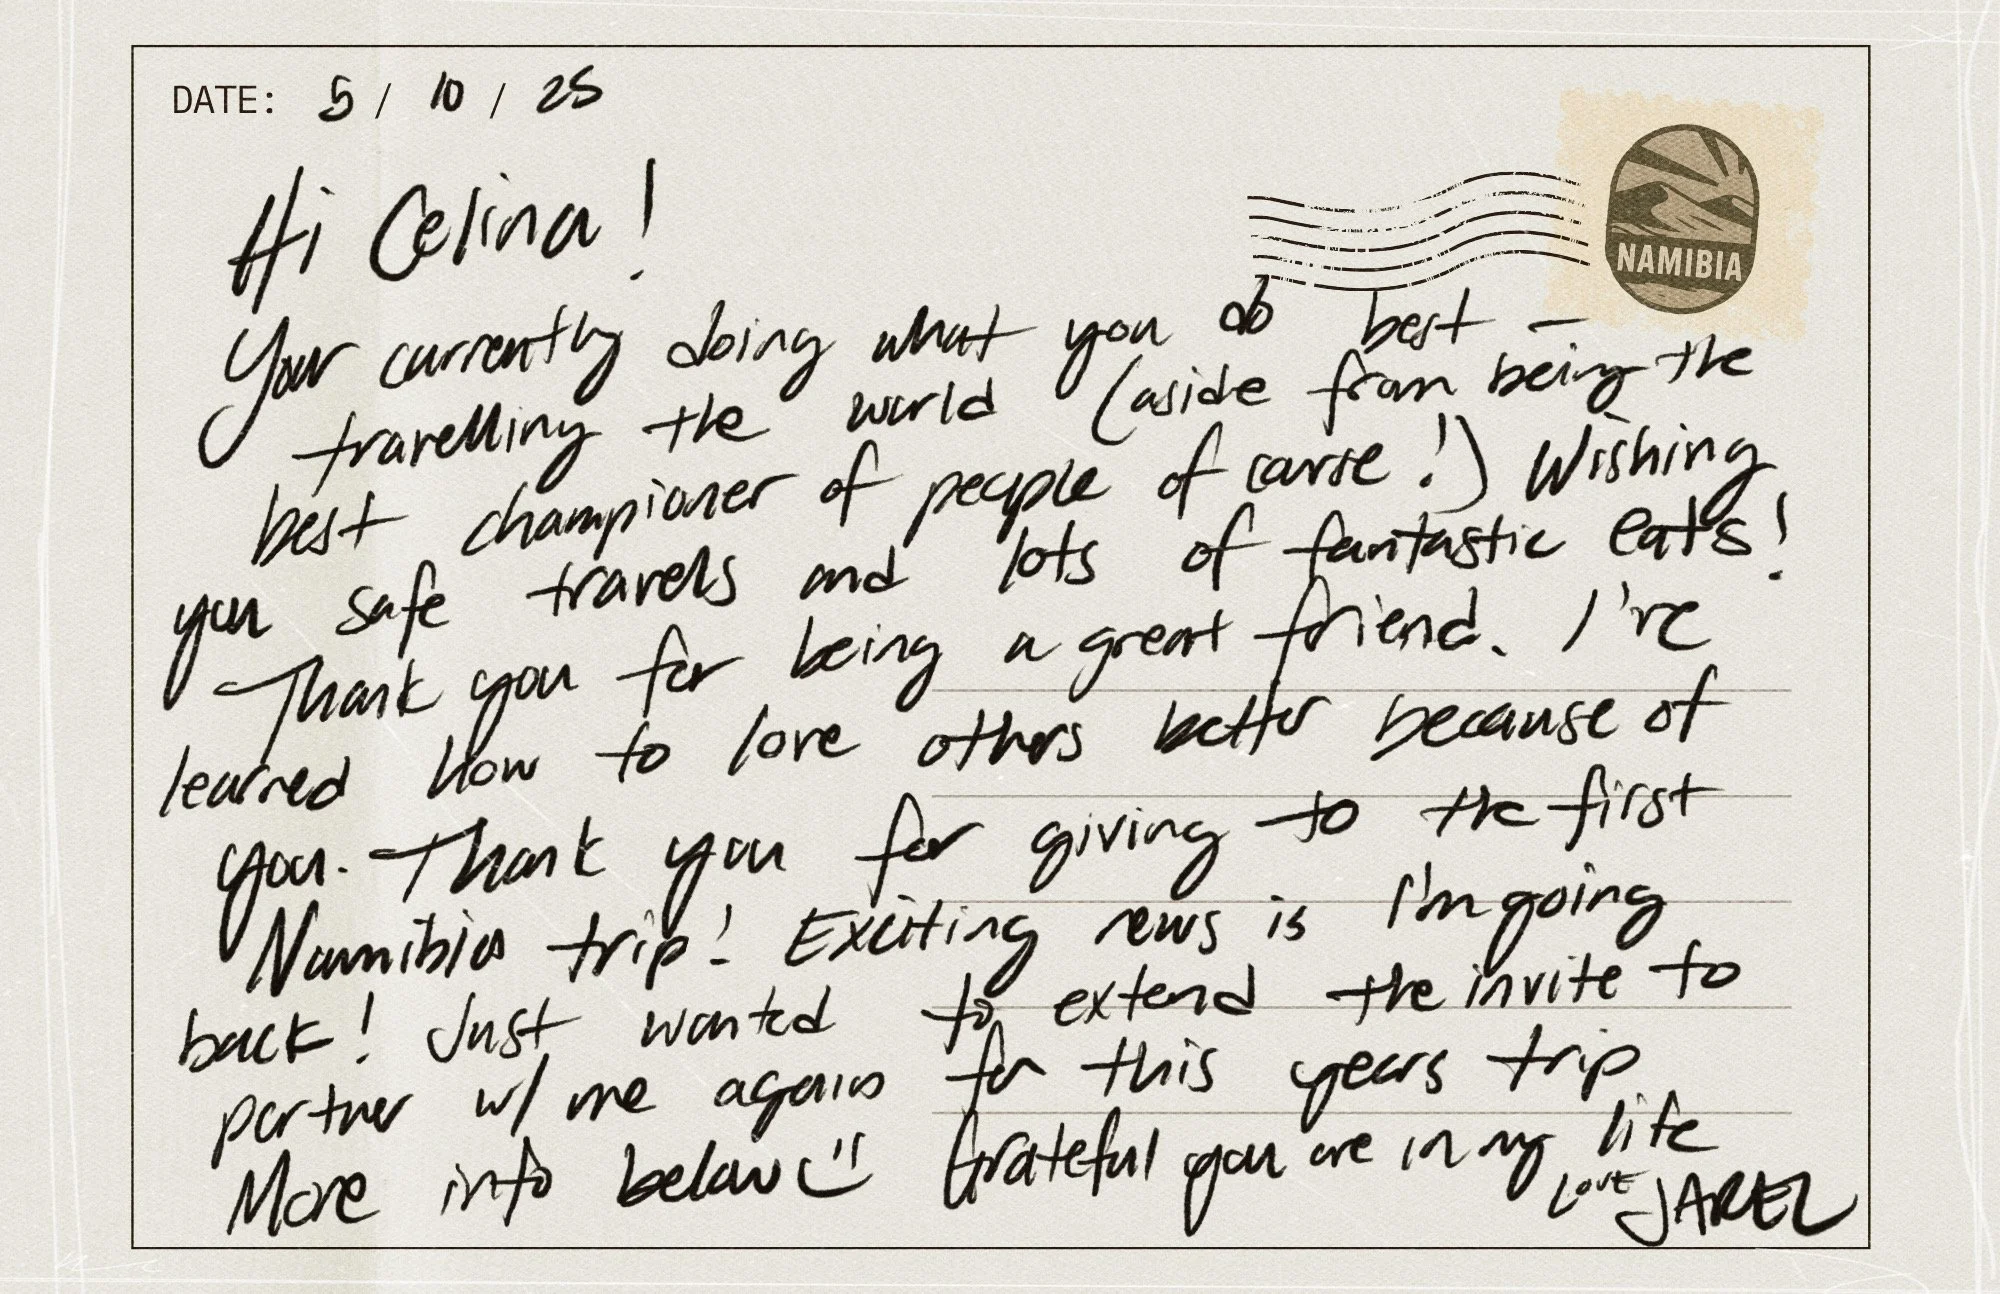 DATE: 5 / 10 / 25
NAMIBIA
Hi Celina!
Your currently doing what you do best –
travelling the world (aside from being the
best championer of people of course!) Wishing
you safe travels and lots of fantastic eats!
Thank you for being a great friend. I've
learned how to love others better because of
you. Thank you for giving to the first
Namibia trip! Exciting news is I'm going
back! Just wanted to extend the invite to
partner w/ me again for this years trip
More info below Grateful you are in my life
LOVE JAREL